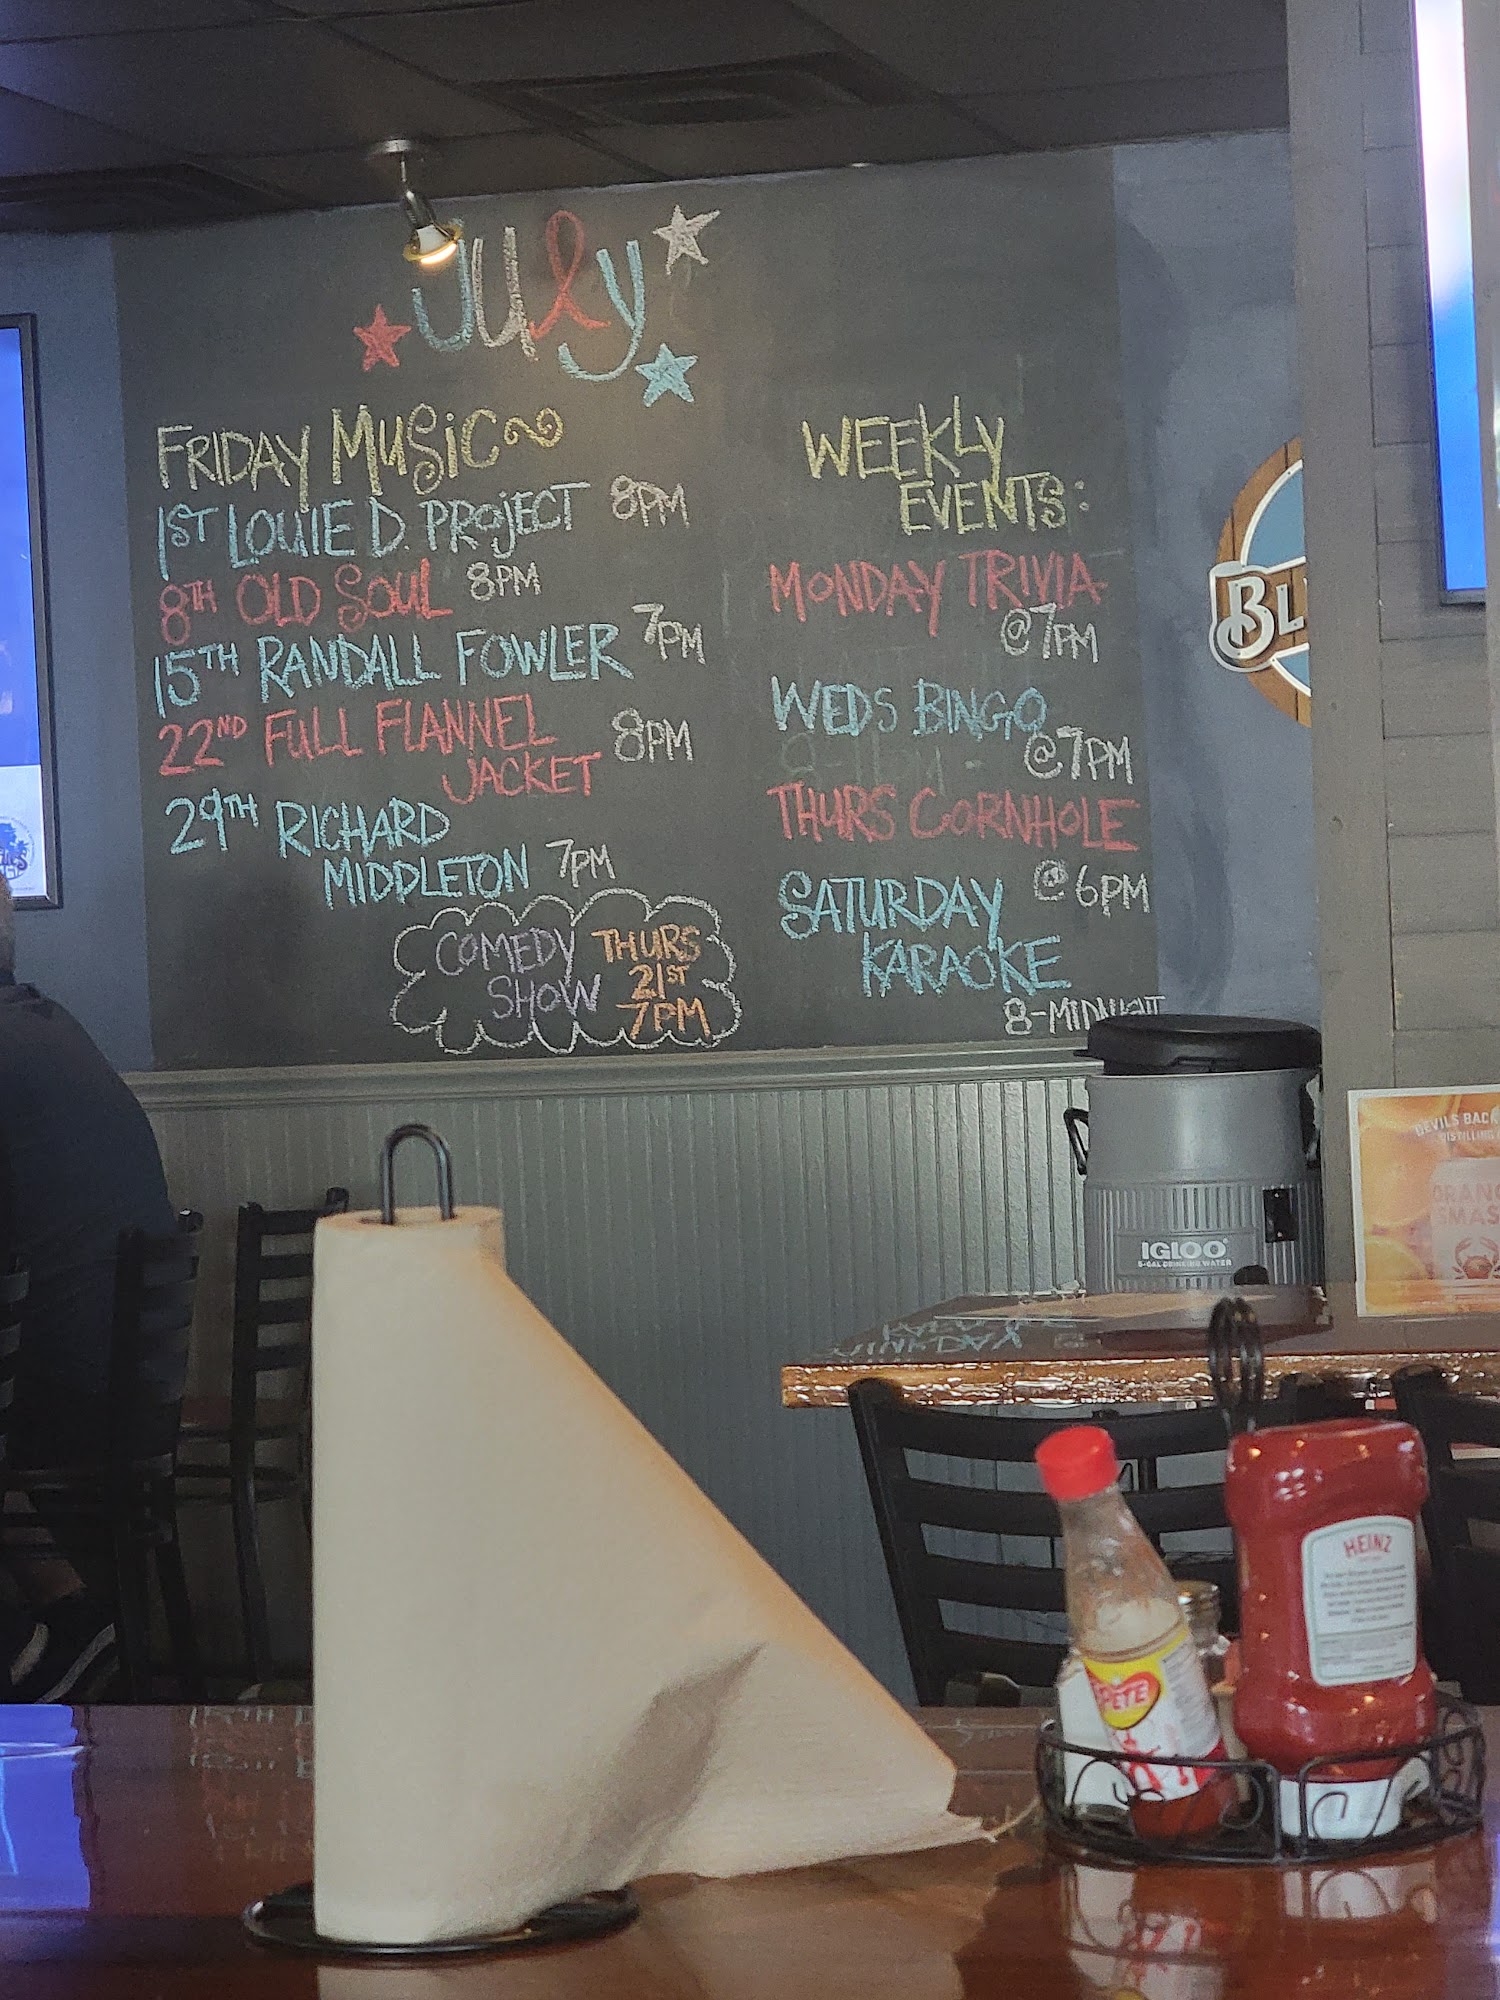 July
FRIDAY MUSIC
1ST LOUIE D. PROJECT 8PM
8TH OLD SOUL 8PM
15TH RANDALL FOWLER 7PM
22ND FULL FLANNEL
JACKET 8PM
29TH RICHARD
MIDDLETON 7PM
COMEDY
SHOW
THURS
21ST
7PM
WEEKLY
EVENTS:
MONDAY TRIVIA
@7PM
WEDS BINGO
@7PM
THURS CORNHOLE
@6PM
SATURDAY
KARAOKE
8-MIDNIGHT
BLU
IGLOO
5-GAL DRINKING WATER
DEVILS BACK
DISTILLING
ORANG
SMAS
HEINZ
PETE